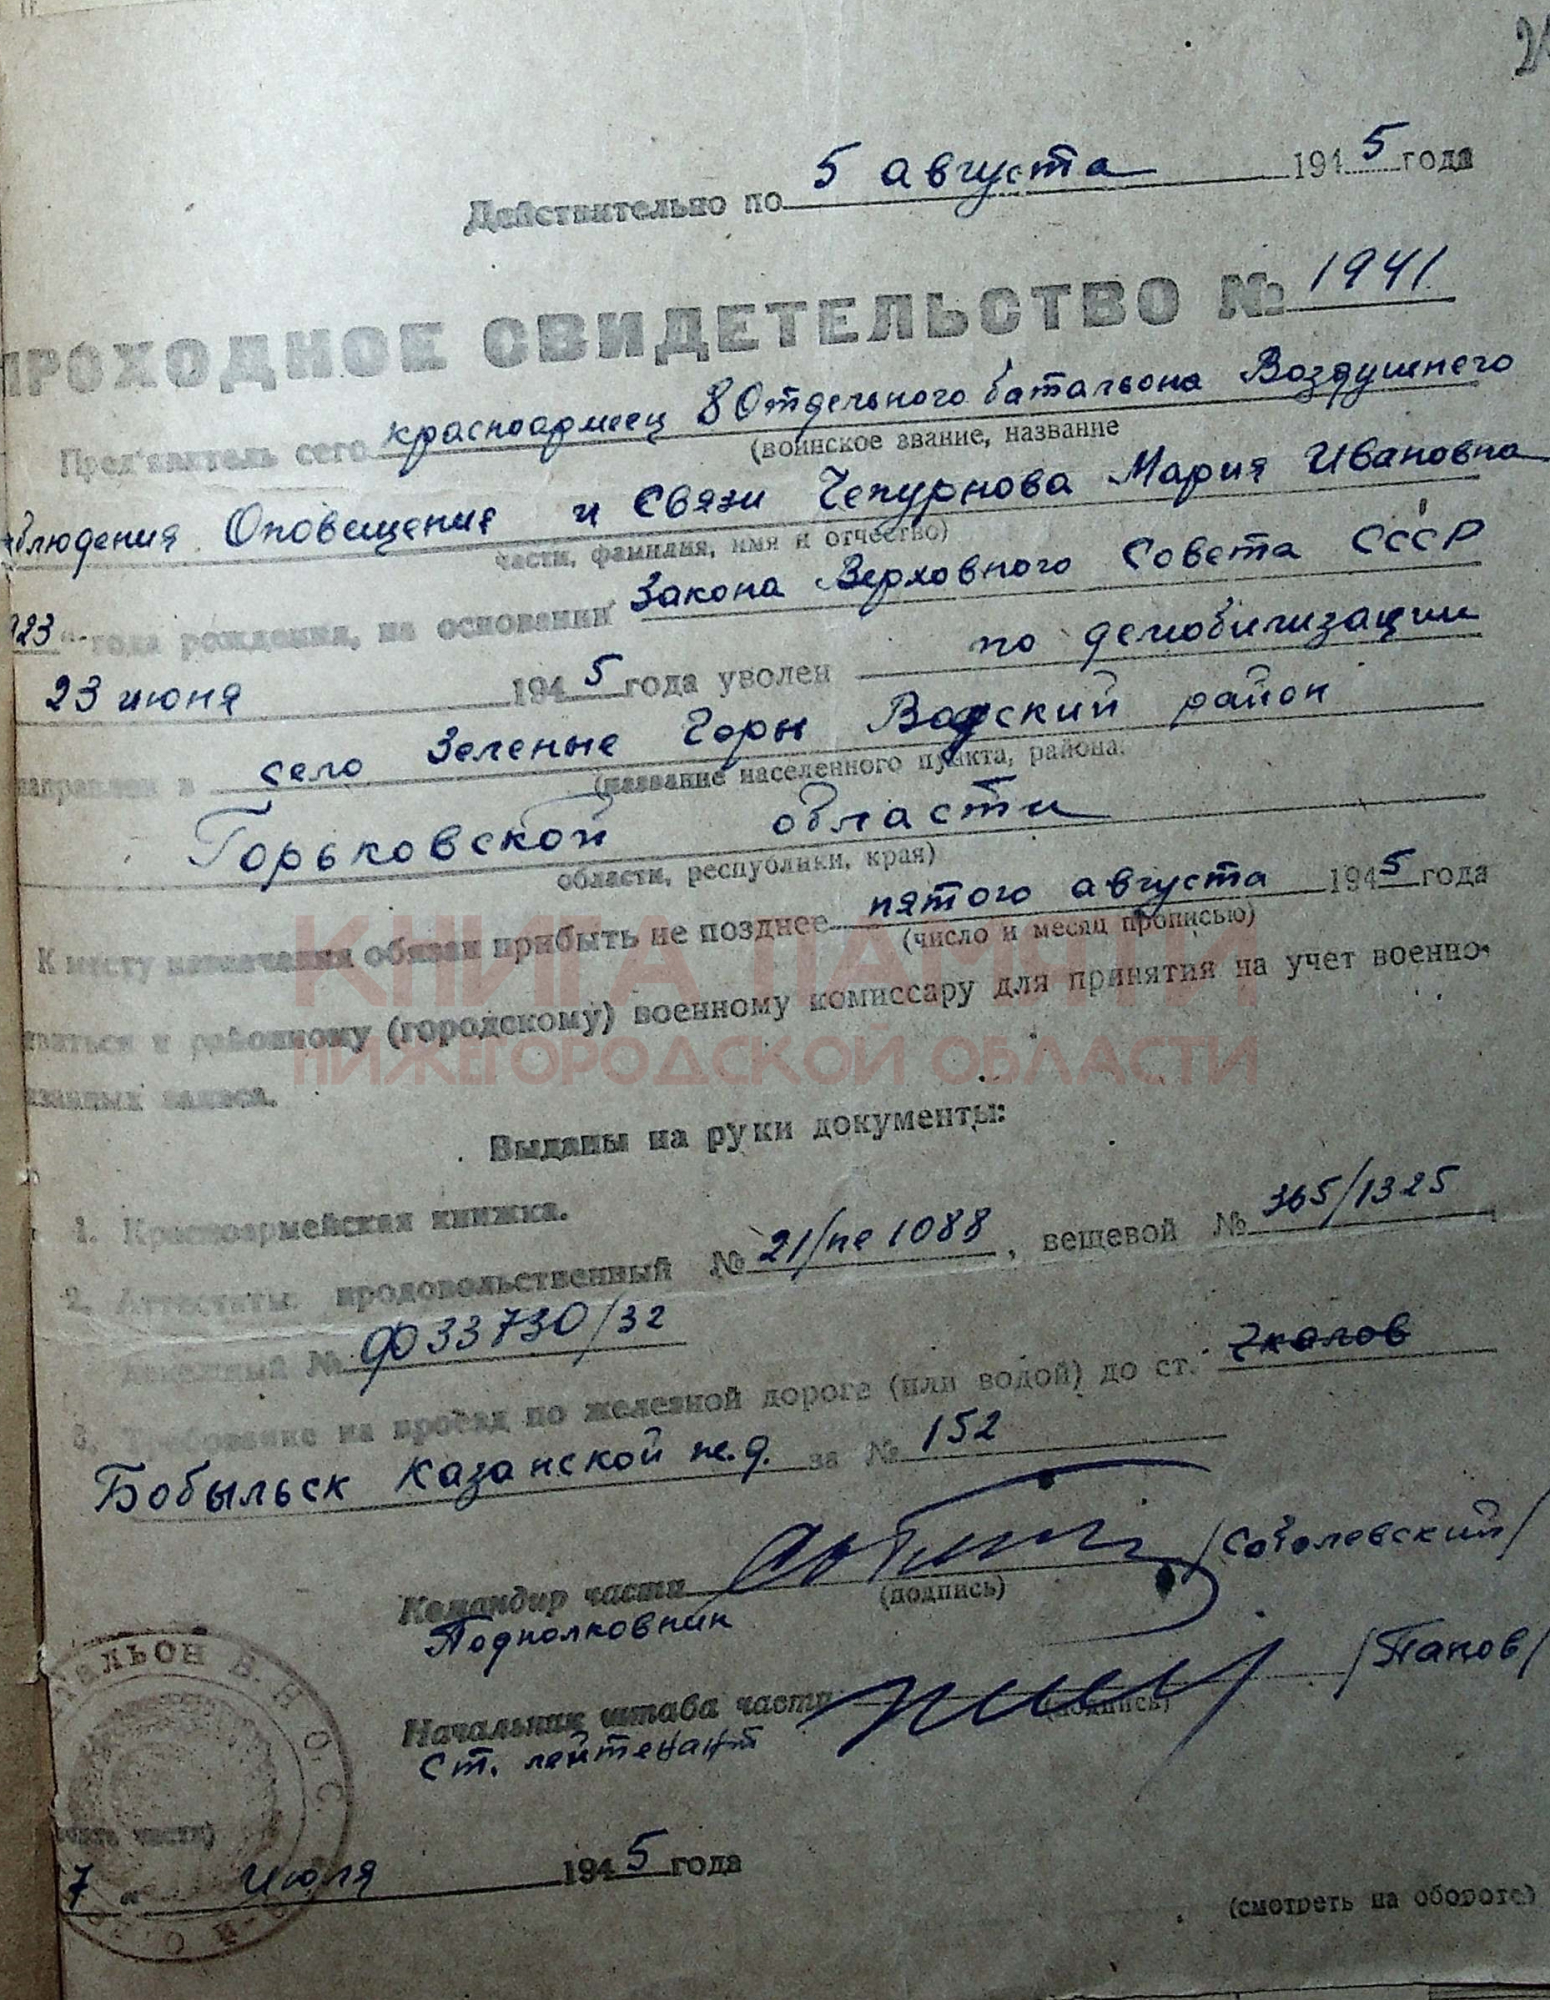 Действительно по 5 августа 1945 года
ПРОХОДНОЕ СВИДЕТЕЛЬСТВО № 1941
Пред'явитель сего красноармеец 8 Отдельного батальона Воздушнего
(воинское звание, название
блюдения Оповещения и Связи Чепурнова Мария Ивановна
части, фамилия, имя и отчество)
923 " года рождения, на основании Закона Верховного Совета СССР
23 июня 1945 года уволен по демобилизации
направлен в село Зеленые Горы Вадский район
(название населенного пункта, района,
Горьковской области
области, республики, края)
К месту назначения обязан прибыть не позднее пятого августа 1945 года
(число и месяц прописью)
виться к районному (городскому) военному комиссару для принятия на учет военно-
язанных запаса.
КНИГА ПАМЯТИ
НИЖЕГОРОДСКОЙ ОБЛАСТИ
Выданы на руки документы:
1. Красноармейская книжка.
2. Аттестаты: продовольственный № 21/пе 1088, вещевой № 365/1325
денежный № Ф 33730/32
3. Требование на проезд по железной дороге (или водой) до ст. Чкалов
Бобыльск Казанской ж.д. за № 152
Командир части (подпись) /Соболевский/
Подполковник
Начальник штаба части (подпись) /Папов/
Ст. лейтенант
тальон В.Н.О.С.
части)
7 " Июля 1945 года
(смотреть на обороте)